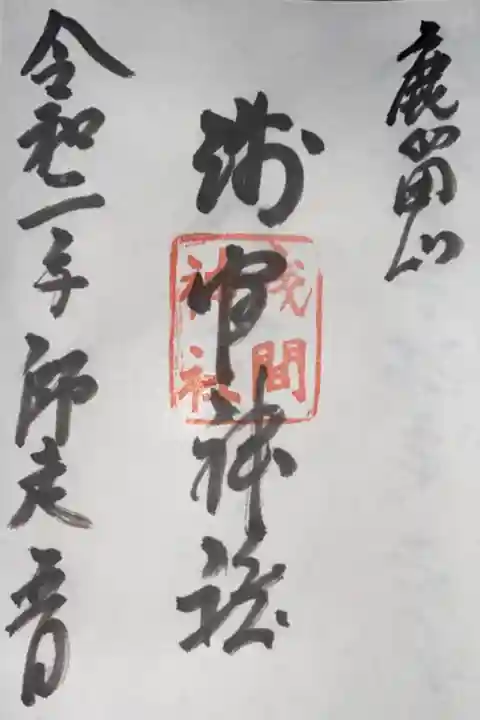 鹿留山
浅間神社
浅間
神社
令和一年師走